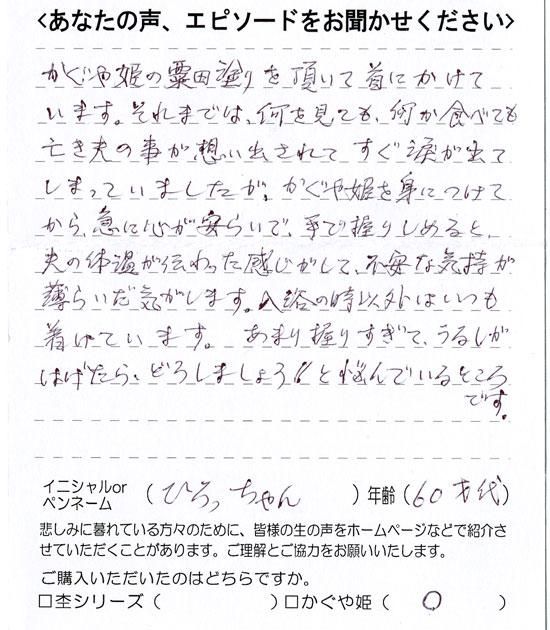 <あなたの声、エピソードをお聞かせください>
かぐや姫の粟田塗りを頂いて首にかけて
います。それまでは、何を見ても、何か食べても
亡き夫の事が、想い出されて すぐ涙が出て
しまっていましたが、かぐや姫を身につけて
から、急に心が安らいで、手で握りしめると、
夫の体温が伝わった感じがして、不安な気持が
薄らいだ気がします。入浴の時以外はいつも
着けています。 あまり握りすぎて、うるしが
はげたら、どうしましょう!と悩んでいるところ
です。
イニシャルor
ペンネーム ( ひろっちゃん ) 年齢 ( 60才代 )
悲しみに暮れている方々のために、皆様の生の声をホームページなどで紹介さ
せていただくことがあります。ご理解とご協力をお願いいたします。
ご購入いただいたのはどちらですか。
□杢シリーズ ( ) □かぐや姫 ( ○ )